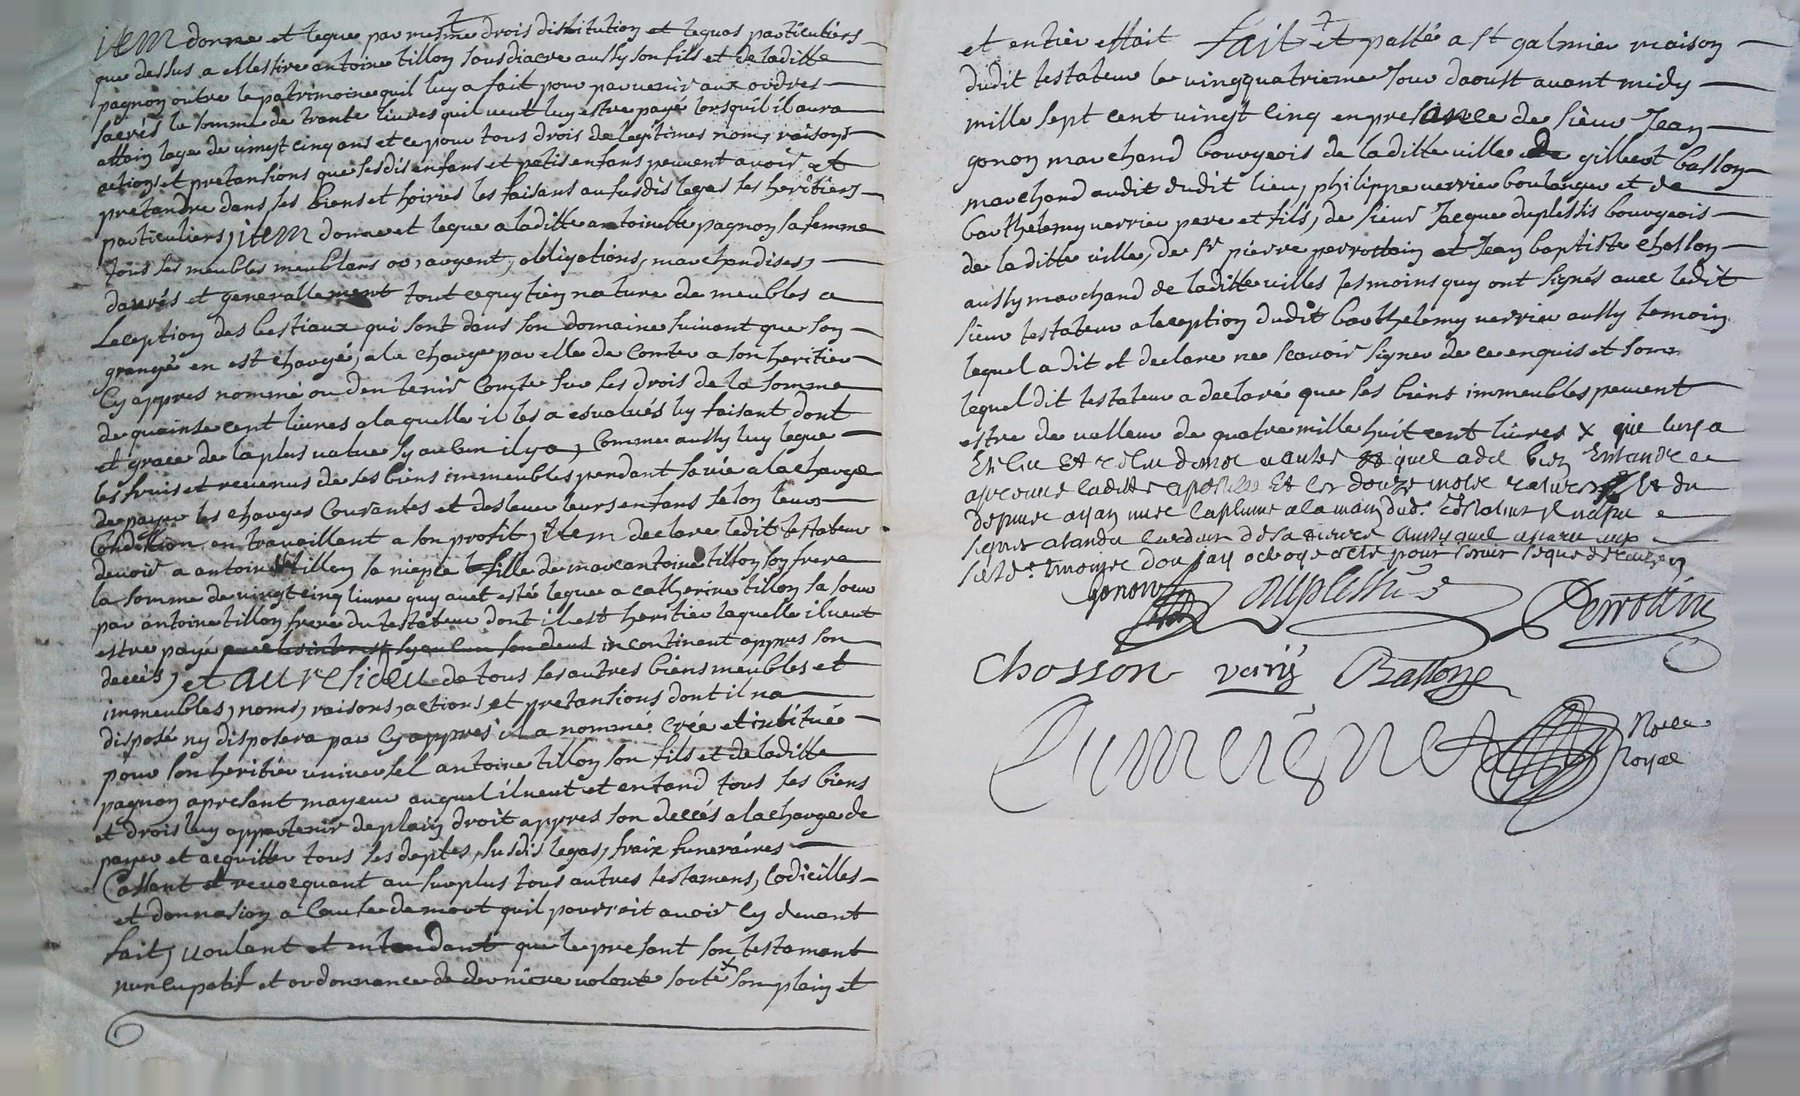 item donne et legue par mesme drois distitution et legas particuliers
que dessus a messire antoine tillon sousdiacre aussy son fils et de laditte
pagnon outre le patrimoine quil luy a fait pour parvenir aux ordres
sacrés la somme de trante livres quil veut luy estre payé lorsquil il aura
attain lage de vingt cinq ans et ce pour tous drois de legitimes noms, raisons
actions et pretansions que sesdis enfans et petis enfans peuvent avoir et
pretandre dans ses biens et hoiries les faisans au susdis legas ses heritiers
particuliers, item donne et legue a laditte antoinette pagnon sa femme
tous ses meubles meublans or, argent, obligations, marchandises,
danrés et generallement tout ce quy tien nature de meubles a
leception des bestiaux qui sont dans son domaine suivant que son
grangé en est chargé, a la charge par elle de comter a son heritier
cy appres nommé ou den tenir comte sur ses drois de la somme
de quainse cent livres a laquelle il les a esvalués luy faisant dont
et grace de la plus value sy aulcun il y a, comme aussy luy legue
les fruis et revenus de ses biens immeubles pendant sa vie a la charge
de payer les charges courantes et deslever leurs enfans selon leur
condition en travaillent a son profit, item declare ledit testateur
devoir a antoinette tillon sa niepce fille de marcantoine tillon son frere
la somme de vingt cinq livre quy avet estée legué a catherine tillon sa soeur
par antoine tillon frere du testateur dont il est heritier laquelle il veut
estre payé avec les interest sy aulcun son deus incontinent appres son
decés, et au resideu de tous ses autres biens meubles et
immeubles, noms, raisons, actions, et pretansions dont il na
disposé ny disposera par cy appres il a nommé créé et intitué
pour son heritier universel antoine tillon son fils et de laditte
pagnon apresant mayeur auquel il veut et entand tous ses biens
et drois luy appartenir de plain droit appres son decés a la charge de
payer et acquitter tous ses deptes, susdis legas, fraix funeraires
Cassent et revocquant au surplus tous autres testamens, codicilles
et donnasion a cause de mort quil pourroit avoir cy devant
fait, voulent et entendant que le present son testament
nuncupatif et ordonnance de derniere volonte sorte son plein et
et entier effait fait et passé a st galmier maison
dudit testateur le vingquatrieme jour daoust avant midy
mille sept cent vingt cinq en presance de sieur Jean
gonon marchand bourgeois de laditte ville de gilbert basson
marchand audit dudit lieu, philippe verrier boulanger et de
barthelemy verrier pere et fils, de sieur Jacque duplessis bourgeois
de laditte ville, de sr pierre perrottain et Jean baptiste chosson
aussy marchand de laditte villes tesmoins quy ont signés avec ledit
sieur testateur a leception dudit barthelemy verrier aussy temoin
lequel a dit et declare ne scavoir signer de ce enquis et somé
lequel dit testateur a declaré que ses biens immeubles peuvent
estre de valleur de quatre mille huit cent livres x que luy a
Este leu Et releu de mot a autre quil a dit bien Entandre
aprouve laditte apostille Et les douze mots raturés
depuis ayan mis la plume a la main dud. testateur il na pu
signer atandu de sa main aussy quil aparu aux
susd.s temoins dont jay octroyé acte pour servir
gonon duplessis Perrottin
Chosson veriy Basson
Dumeignet Notre
Royal